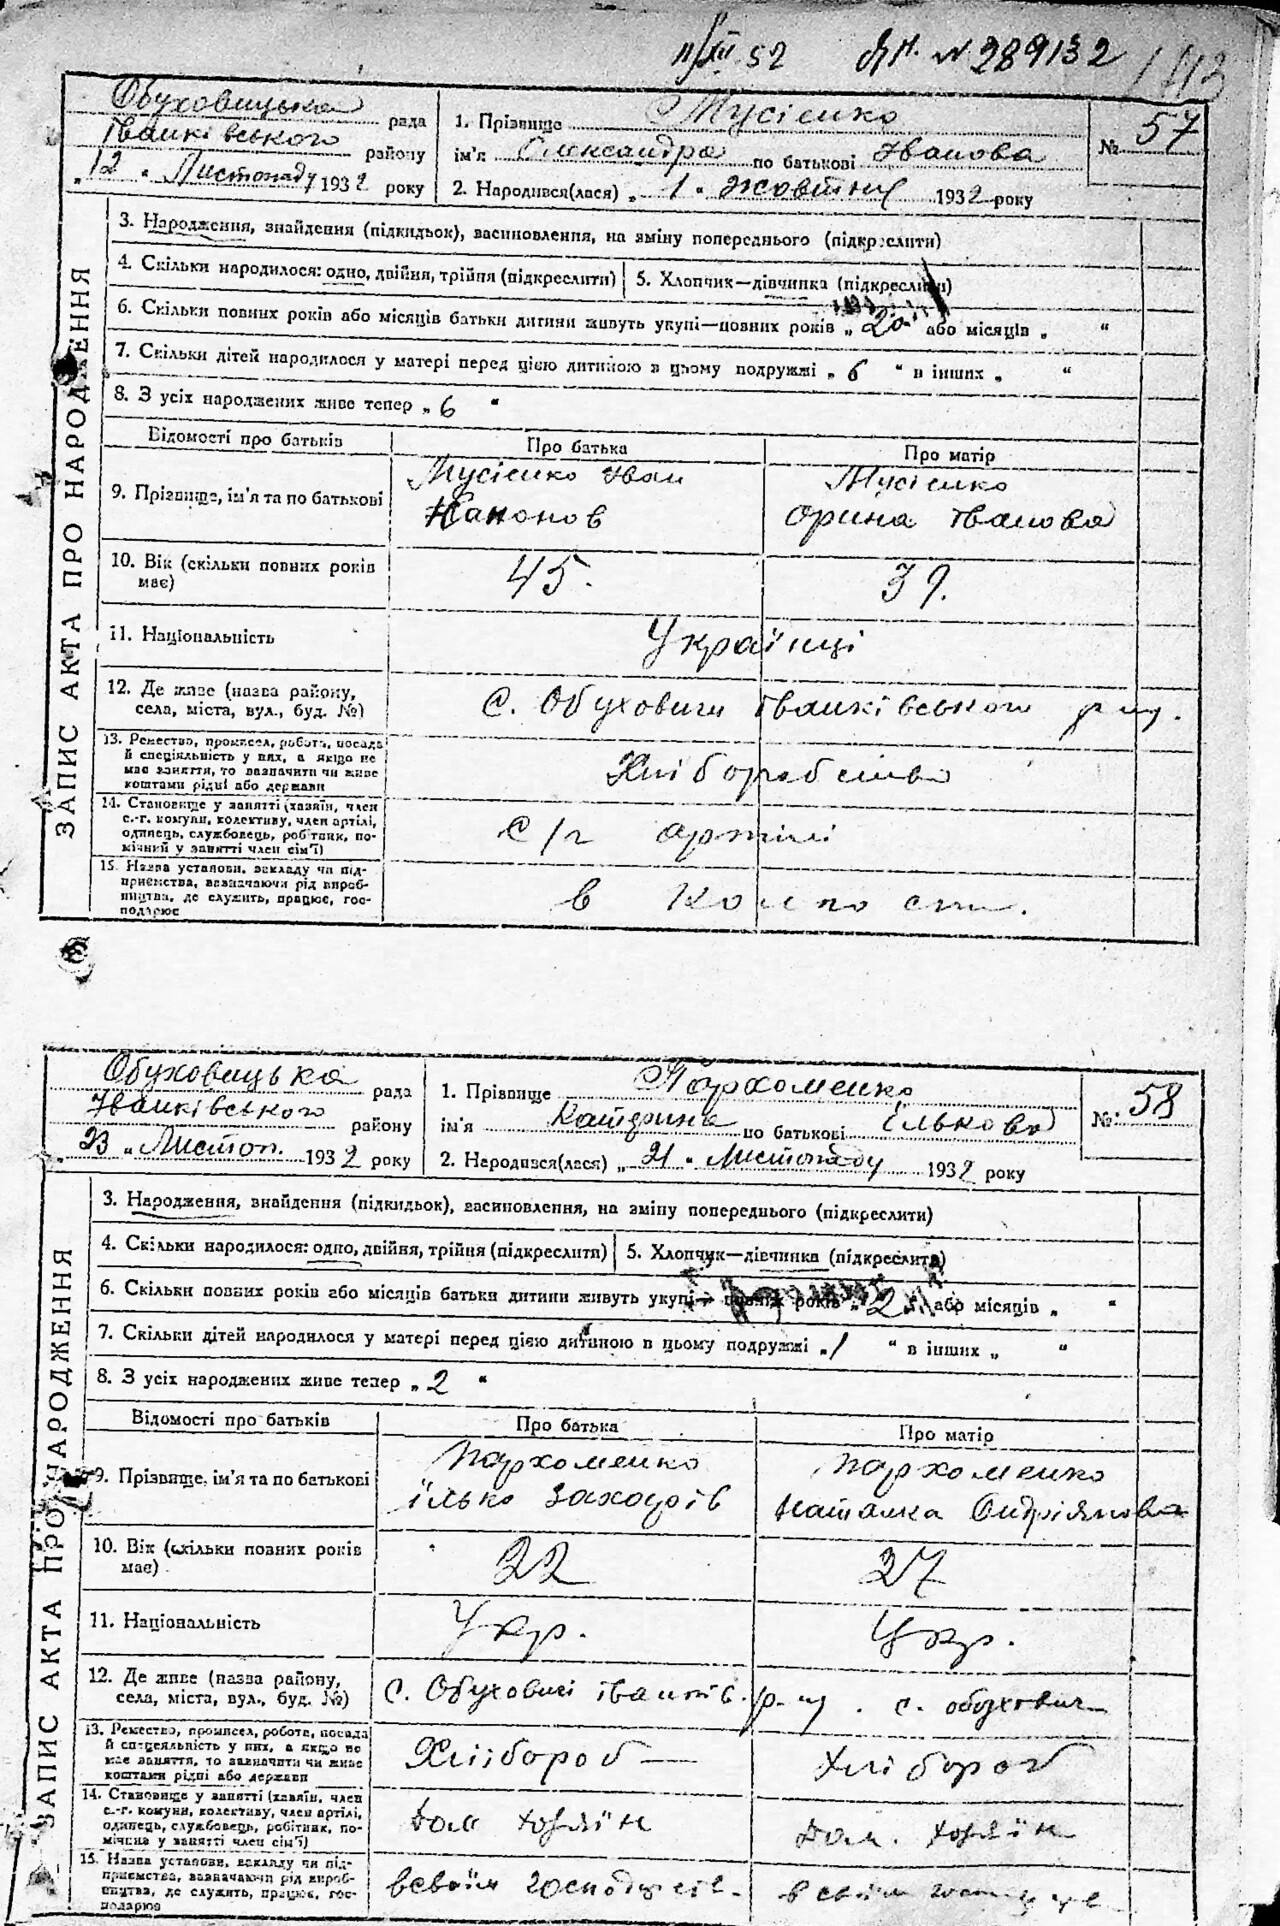 11/XII 52 № 289132
Обуховицька рада
Іванківського району
„12" Листопаду 1932 року
1. Прізвище Мусієнко
ім'я Олександра по батькові Іванова
2. Народився(лася) „1" Жовтня 1932 року
№ 57
ЗАПИС АКТА ПРО НАРОДЖЕННЯ
3. Народження, знайдення (підкидьок), васиновлення, на зміну попереднього (підкреслити)
4. Скільки народилося: одно, двійня, трійня (підкреслити) 5. Хлопчик—дівчинка (підкреслити)
6. Скільки повних років або місяців батьки дитини живуть укупі—повних років „20" або місяців „ "
7. Скільки дітей народилося у матері перед цією дитиною в цьому подружжі „6 " в інших „ "
8. З усіх народжених живе тепер „6 "
Відомості про батьків Про батька Про матір
9. Прізвище, ім'я та по батькові
Мусієнко Іван
Канонов
Мусієнко
Орина Іванова
10. Вік (скільки повних років
має)
45. 39.
11. Національність Українці
12. Де живе (назва району,
села, міста, вул., буд. №)
с. Обуховичі Іванківського р-ну.
13. Ремество, промисел, робота, посада
й спеціяльність у них, а якщо не
має заняття, то зазначити чи живе
коштами рідні або держави
Хліборобство
14. Становище у занятті (хазяїн, член
с.-г. комуни, колективу, член артілі,
одинець, службовець, робітник, по-
мічний у занятті член сім'ї)
с/г артілі
15. Назва установи, закладу чи під-
приємства, зазначаючи рід вироб-
ництва, де служить, працює, гос-
подарює
в
Обуховицька рада
Іванківського району
„23" Листоп. 1932 року
1. Прізвище Пархоменко
ім'я Катерина по батькові Ількова
2. Народився(лася) „21" Листопаду 1932 року
№ 58
ЗАПИС АКТА ПРО НАРОДЖЕННЯ
3. Народження, знайдення (підкидьок), васиновлення, на зміну попереднього (підкреслити)
4. Скільки народилося: одно, двійня, трійня (підкреслити) 5. Хлопчик—дівчинка (підкреслити)
6. Скільки повних років або місяців батьки дитини живуть укупі— повних років „2" або місяців „ "
7. Скільки дітей народилося у матері перед цією дитиною в цьому подружжі „1 " в інших „ "
8. З усіх народжених живе тепер „2 "
Відомості про батьків Про батька Про матір
9. Прізвище, ім'я та по батькові
Пархоменко
Ілько Захарів
Пархоменко
Наталка Андріянова
10. Вік (скільки повних років
має)
22 27
11. Національність Укр. Укр.
12. Де живе (назва району,
села, міста, вул., буд. №)
с. Обуховичі Іванків. р-ну. с. Обухович
13. Ремество, промисел, робота, посада
й спеціяльність у них, а якщо не
має заняття, то зазначити чи живе
коштами рідні або держави
Хлібороб — Хлібороб
14. Становище у занятті (хазяїн, член
с.-г. комуни, колективу, член артілі,
одинець, службовець, робітник, по-
мічна у занятті член сім'ї)
хазяїн хазяїн
15. Назва установи, закладу чи під-
приємства, зазначаючи рід вироб-
ництва, де служить, працює, гос-
подарює
в своїм господарств. в своїм